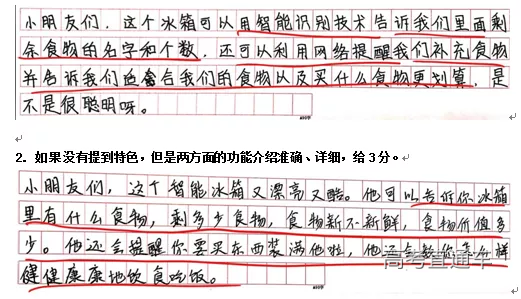 小朋友们，这个冰箱可以用智能识别技术告诉我们里面剩
余食物的名字和个数，还可以利用网络提醒我们补充食物
并告诉我们适合我们的食物以及买什么食物更划算，是
不是很聪明呀。
2．如果没有提到特色，但是两方面的功能介绍准确、详细，给 3 分。
小朋友们，这个智能冰箱又漂亮又酷。他可以告诉你冰箱
里有什么食物，剩多少食物，食物新不新鲜，食物价值多
少。他还会提醒你要买东西装满他啦，他还会教你怎么样
健健康康地饮食吃饭。
高考直通车